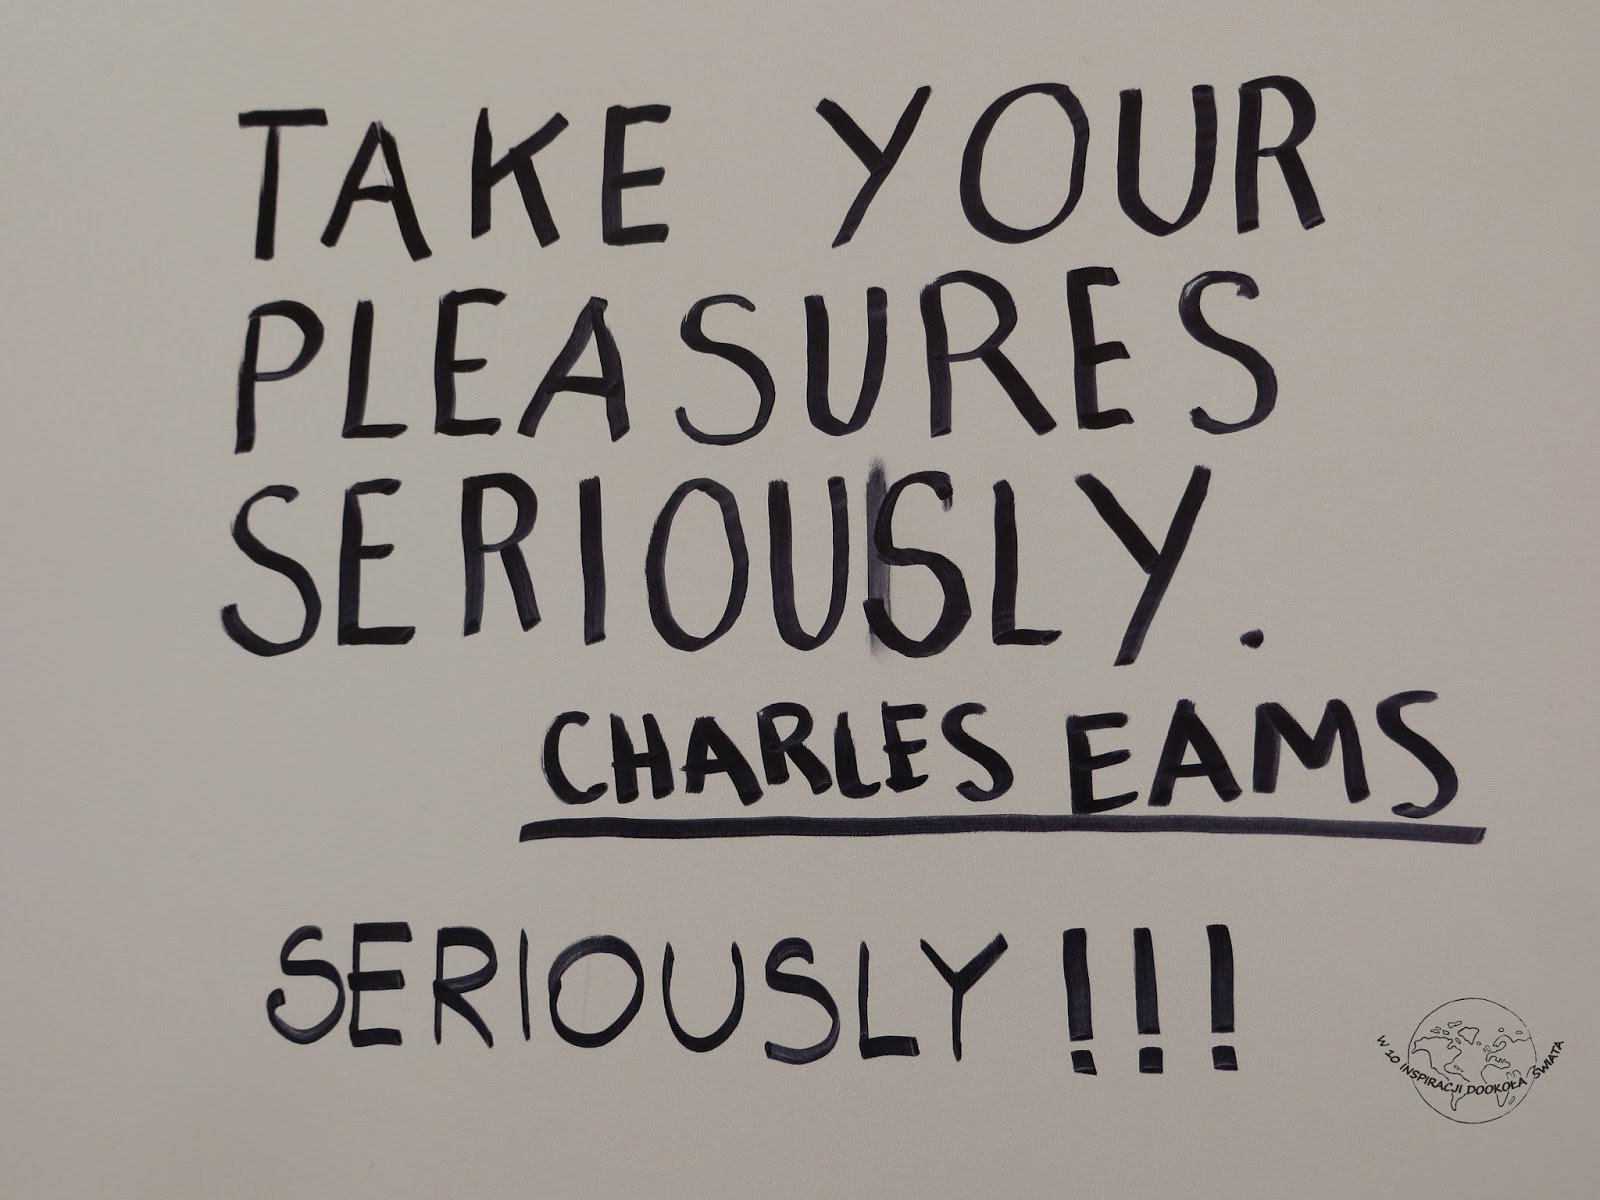 TAKE YOUR
PLEASURES
SERIOUSLY.
CHARLES EAMS
SERIOUSLY!!!
W 10 INSPIRACJI DOOKOŁA ŚWIATA